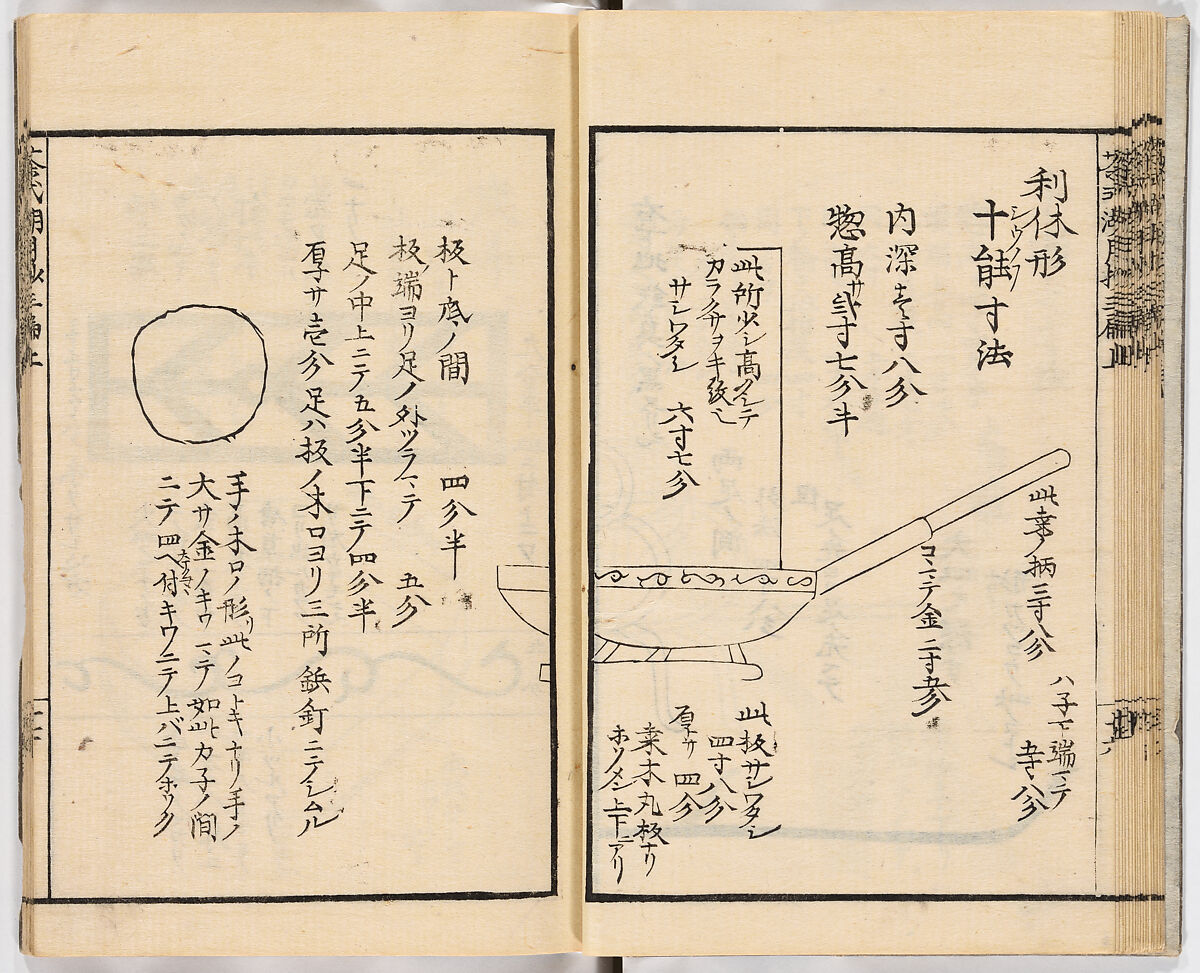 利休形
十能寸法
シウノフ
内深サ壱寸八分
惣高サ弐寸七分半
此所少シ高クシテ
カラクサヲキ紋也
サシワタシ 六寸七分
此桑ノ柄三寸八分
ハ子モ端マテ
壱寸八分
コヽマテ金二寸五分
此板サシワタシ
四寸八分
厚サ 四分
桒木丸板ナリ
ホソメン上下ニアリ
板ト底ノ間 四分半
板ノ端ヨリ足ノ外ツラマテ 五分
足ノ中上ニテ五分半下ニテ四分半
厚サ壱分足ハ板ノ木口ヨリ三所鋲釘ニテシムル
手ノ木口ノ形リ此ノコトキナリ手ノ
大サ金ノキワマテ如此カ子ノ間
ニテ四方ヘ付キワニテ上バニテホソク